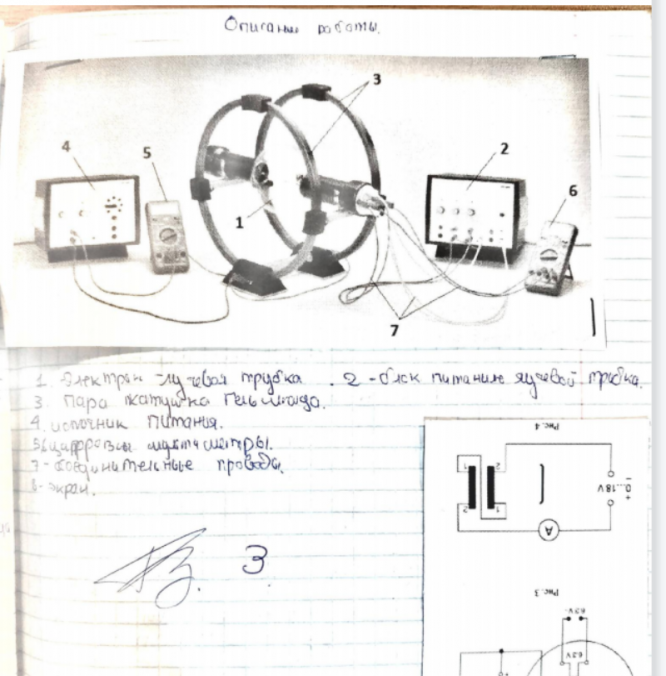 Описание работы.
3
4
5
2
6
1
7
1. Электрон-лучевая трубка. 2 - блок питание лучевой трубка.
3. Пара катушка Гельмгольца.
4. источник питания.
5,6 цифровые мультиметры.
7 - соединительные провода.
8 - экран.
3
Рис. 4
1 2
2 1
0...18V
– +
A
Рис. 3
6.3V~
6.3V